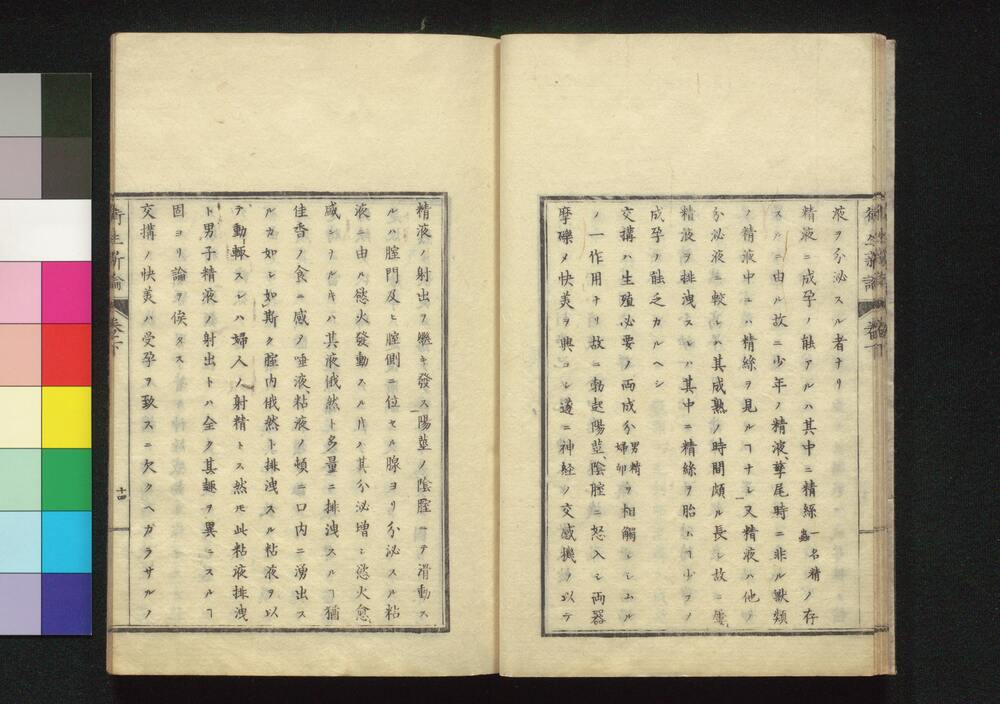 液ヲ分泌スル者ナリ
精液ニ成孕ノ能アルハ其中ニ精絲一名精蟲ノ存
スルニ由ル故ニ少年ノ精液、孳尾時ニ非ル獸類
ノ精液中ニハ精絲ヲ見ルヿナシ又精液ハ他ノ
分泌液ニ較レハ其成熟ノ時間頗ル長シ故ニ屢
精液ヲ排洩スレハ其中ニ精絲ヲ胎ハヿ少フノ
成孕ノ能乏カルヘシ
交搆ハ生殖必要ノ両成分男精婦卵ヲ相觸レシムル
ノ一作用ナリ故ニ勃起陽莖、陰腟ニ怒入シ両器
摩礫メ快美ヲ興コシ遂ニ神経ノ交感機ヲ以テ
精液ノ射出ヲ継キ發ス陽莖ノ陰腟ニテ滑動ス
ルハ腟門及ヒ腟側ニ位セル腺ヨリ分泌スル粘
液ニ由ル慾火發動スル片ハ其分泌増シ慾火愈
盛ンナルキハ其液俄然ト多量ニ排洩スルヿ猶
佳香ノ食ニ感ノ唾液、粘液ノ頓ニ口内ニ湧出ス
ルカ如シ如斯ク腟内俄然ト排洩スル粘液ヲ以
テ動輙スレハ婦人ノ射精トス然圧此粘液排洩
ト男子精液ノ射出トハ全ク其趣ヲ異ニスルヿ
固ヨリ論ヲ俟タス
交搆ノ快美ハ受孕ヲ致スニ欠クヘカラサルノ
衛生新論
卷之下
十四